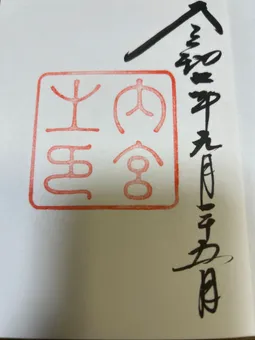 令和二年九月二十五日
内宮
之印